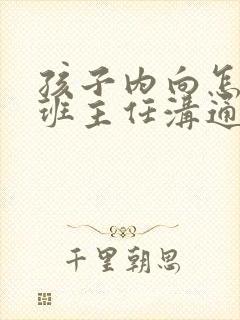 孩子内向怎
班主任溝通
千里朝思